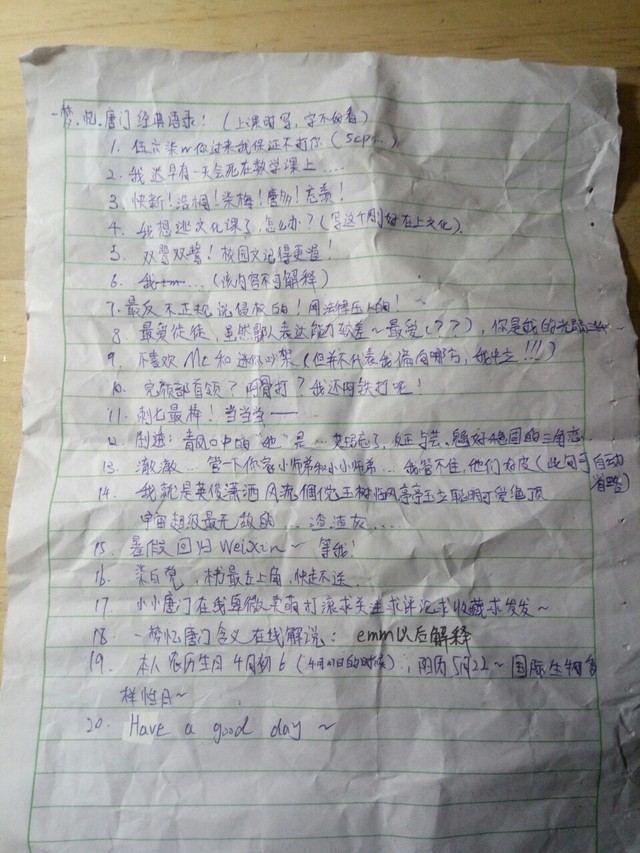 一梦忆唐门经典语录！（上课时写，字不好看）
1. 伍六柒你过来我保证不打你（scp...）
2. 我迟早有一天会死在数学课上....
3. 快新！浩桐！柒梅！唐易！克柔！
4. 我想逃文化课了，怎么办？（写这个刚好在上文化）
5. 双鹭双鹭！校园文记得更啦！
6. 我...（该内容不可解释）
7. 最反不正规说侵权的！用法律压人的！
8. 最爱徒徒，虽然鄙人表达能力较差～最爱（？？），你是我的光
9. 不喜欢Mc和迷你吵架（但并不代表我偏向哪方，我中立!!!）
10. 完颜部首领？阿骨打？我还阿铁打呢！
11. 刺七最棒！当当当——
12. 剧透：青凤口中的“她”是...，反正与芸、绝国的三角恋
13. 澈澈...管下你家小师弟和小小师弟...我管不住，他们太皮（此句子自动省略）
14. 我就是英俊潇洒风流倜傥玉树临风亭亭玉立聪明可爱绝顶
宇宙超级最无敌的...渣渣灰...
15. 暑假回归WeiXin～等我！
16. 柒白党，梅最左上角，快走不送
17. 小小唐门在我身微卖萌打滚求关注求评论求收藏求发发～
18. 一梦忆唐门含义在线解说：emm以后解释
19. 本人农历生日4月初6（4月27日的时候），阳历5月22～国际生物多
样性日～
20. Have a good day ~